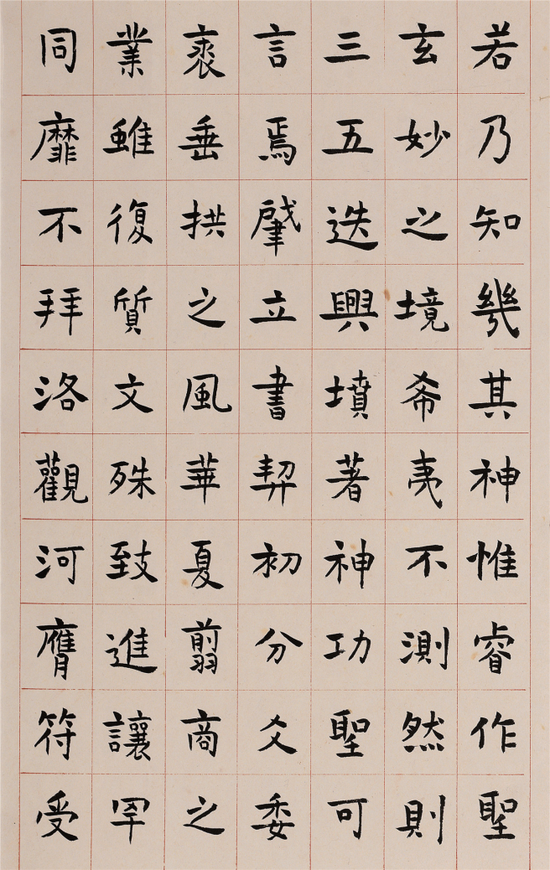 若乃知幾其神惟睿作聖
玄妙之境希夷不測然則
三五迭興墳著神功聖可
言焉肇立書契初分爻委
裘垂拱之風華夏翦商之
業雖復質文殊致進讓罕
同靡不拜洛觀河膺符受